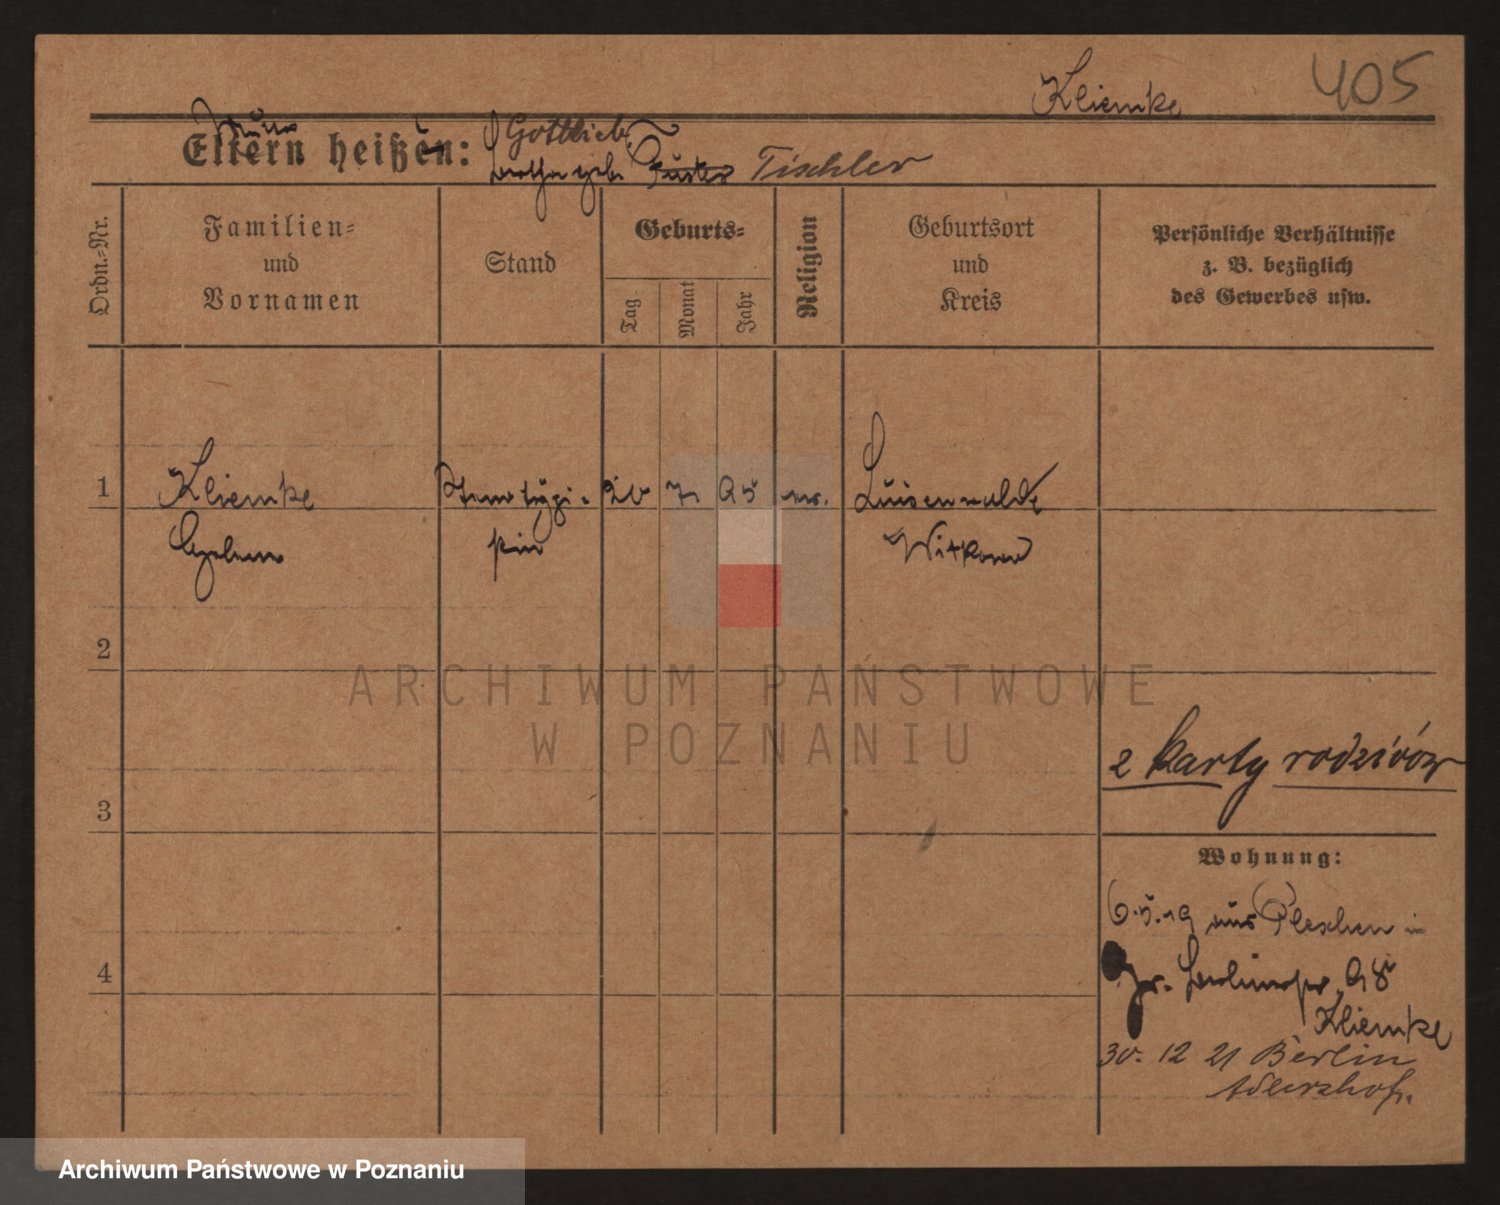 Kliemke
405
Eltern heißen: Gottlieb
geb. Tischler
Ordn.-Nr.
Familien-
und
Vornamen
Stand
Geburts-
Tag
Monat
Jahr
Religion
Geburtsort
und
Kreis
Persönliche Verhältnisse
z. B. bezüglich
des Gewerbes usw.
1 Kliemke Stenotypi- 7. 95 ev. Luisenwalde
stin Witkowo
2
ARCHIWUM PAŃSTWOWE
W POZNANIU
2 karty rodziców
3
Wohnung:
6.5.19 aus Pleschen in
4
Gr. Berlinerstr. 98
Kliemke
30. 12 21 Berlin
Adlershof.
Archiwum Państwowe w Poznaniu